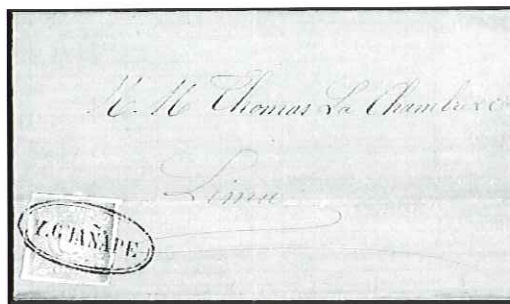 M. M. Thomas La Chambre &c
Lima
I. GUAÑAPE